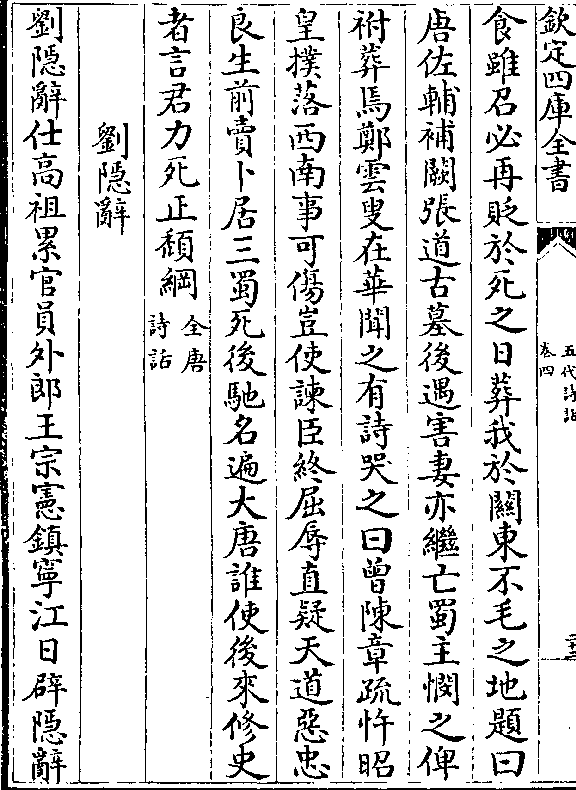 欽定四庫全書
五代詩話
卷四
食雖召必再貶於死之日葬我於關東不毛之地題曰
唐佐輔補闕張道古墓後遇害妻亦繼亡蜀主憫之俾
祔葬焉鄭雲叟在華聞之有詩哭之曰曾陳章疏忤昭
皇撲落西南事可傷豈使諫臣終屈辱直疑天道惡忠
良生前賣卜居三蜀死後馳名遍大唐誰使後來修史
者言君力死正頹綱全唐
詩話
劉隱辭
劉隱辭仕高祖累官員外郎王宗憲鎮寧江日辟隱辭